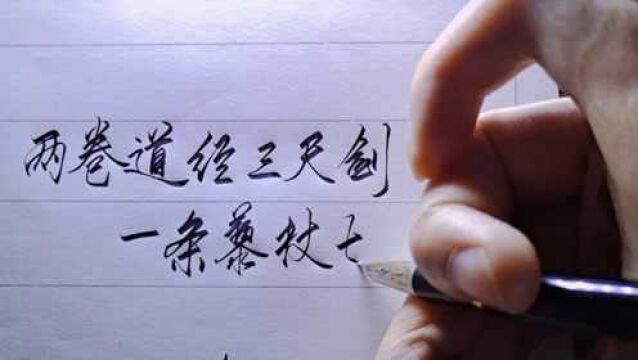 两卷道经三尺剑
一条藜杖七